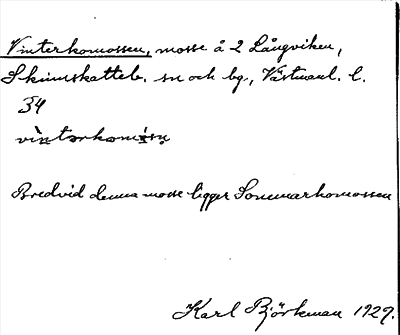 Vinterkomossen, mosse å 2 Långviken,
Skinnskatteb. sn och bg., Västmanl. l.
34
Bredvid denna mosse ligger Sommarkomossen
Karl Björkman 1929.